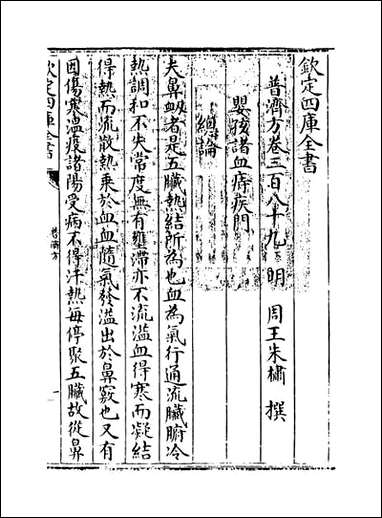 欽定四庫全書
普濟方卷三百八十九 明 周王朱橚 撰
嬰孩諸血痔疾門
總論
夫鼻衂者是五臟熱結所為也血為氣行通流臟腑冷
熱調和不失常度無有壅滯亦不流溢血得寒而凝結
得熱而流散熱乗於血血隨氣發溢出於鼻竅也又有
因傷寒溫疫諸陽受病不得汗熱毎停聚五臟故從鼻
欽定四庫全書
普濟方
一